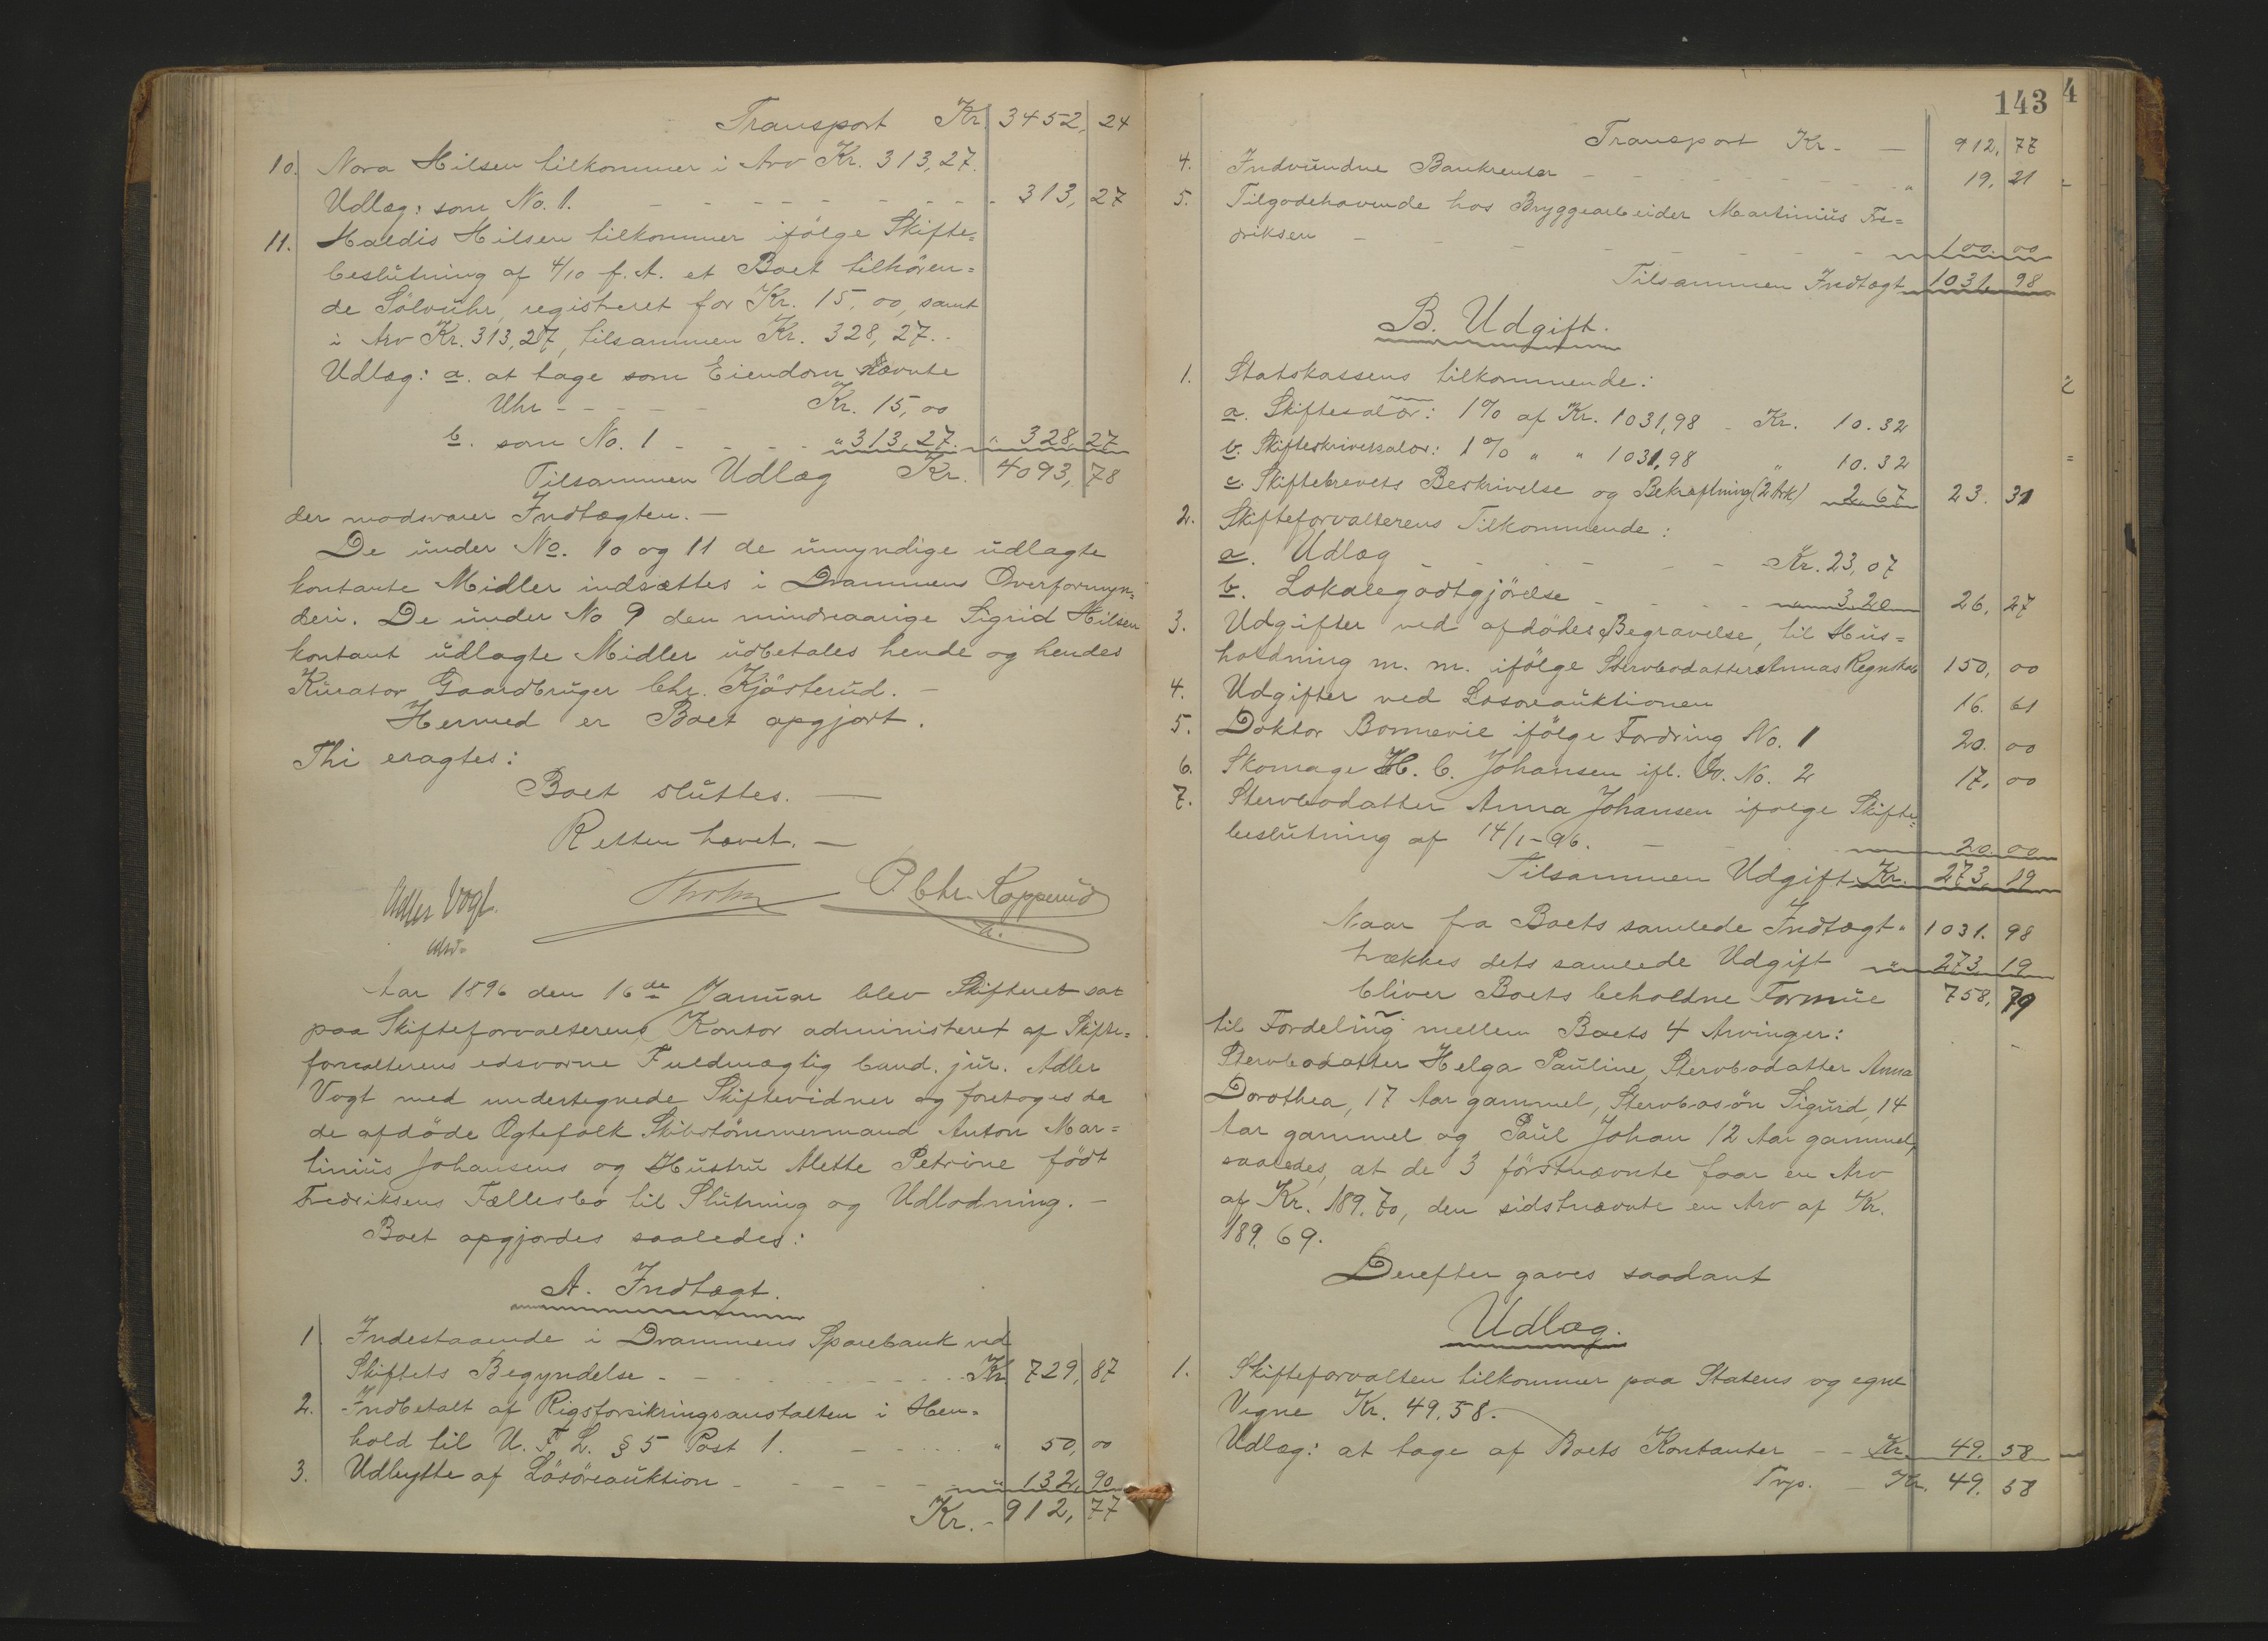 Transport Kr. 3452, 24
10. Nora Hilsen tilkommer i Arv Kr. 313,27.
Udlæg: som No. 1. - - - - - - - - - 313, 27
11. Haldis Hilsen tilkommer ifölge Skifte=
beslutning af 4/10 f. A. et Boet tilhören=
de Sölvuhr, registreret for Kr. 15,00, samt
i Arv Kr. 313,27, tilsammen Kr. 328,27.
Udlæg: a. at tage som Eiendom nævnte
Uhr - - - - - Kr. 15,00
b. som No. 1 - - - - " 313,27. " 328, 27
Tilsammen Udlæg Kr. 4093, 78
der modsvarer Indtægten. —
De under No. 10 og 11 de umyndige udlagte
kontante Midler indsættes i Drammens Overformyn=
deri. De under No 9 den mindreaarige Sigrid Hilsen
kontant udlagte Midler udbetales hende og hendes
Kurator Gaardbruger Chr. Kjösterud. —
Hermed er Boet opgjort.
Thi eragtes:
Boet sluttes. —
Retten hævet. —
Adler Vogt. Thohn P. Chr. Kopperud
edsv=
Aar 1896 den 16de Januar blev Skifteret sat
paa Skifteforvalterens Kontor administreret af Skifte=
forvalterens edsvorne Fuldmægtig Cand. jur. Adler
Vogt med undertegnede Skiftevidner og foretoges da
de afdöde Ægtefolk Skibstömmermand Anton Mar=
tinius Johansens og Hustru Alette Petrine födt
Fredriksens Fællesbo til Slutning og Udlodning. —
Boet opgjordes saaledes:
A. Indtægt.
1. Indestaaende i Drammens Sparebank ved
Skiftets Begyndelse - - - - - - - Kr. 729, 87
2. Indbetalt af Rigsforsikringsanstalten i Hen=
hold til U. F. L. § 5 Post 1. - - - - " 50, 00
3. Udbytte af Lösöreauktion - - - - - " 132, 90
Kr. - 912, 77
143
4
Transport Kr. - — 912, 77
4. Indvundne Bankrenter - - - - - - - - " 19, 21
5. Tilgodehavende hos Bryggearbeider Martinius Fre=
driksen - - - - - - - 100. 00
Tilsammen Indtægt 1031, 98
B. Udgift.
1. Statskassens tilkommende:
a. Skiftesalær: 1% af Kr. 1031,98 - Kr. 10.32
b. Skifteskriversalær: 1% " " 1031,98 " 10.32
c. Skiftebrevets Beskrivelse og Bekræftning (2 Ark) 2.67 23. 31
2. Skifteforvalterens Tilkommende:
a. Udlæg - - - - - - Kr. 23,07
b. Lokalegodtgjörelse - - - - 3.20 26, 27
3. Udgifter ved afdödes Begravelse, til Hus=
holdning m. m. ifölge Stervbodatter Annas Regnskab 150, 00
4. Udgifter ved Lösöreauktionen 16. 61
5. Doktor Bonnevie ifölge Fordring No. 1 20. 00
6. Skomager H. C. Johansen ifl. Fo. No. 2 17, 00
7. Stervbodatter Anna Johansen ifölge Skifte=
beslutning af 14/1-96. - - - 20. 00
Tilsammen Udgift Kr. 273, 19
Naar fra Boets samlede Indtægt " 1031. 98
trækkes dets samlede Udgift " 273, 19
bliver Boets beholdne Formue 758, 79
til Fordeling mellem Boets 4 Arvinger:
Stervbodatter Helga Pauline, Stervbodatter Anna
Dorothea, 17 Aar gammel, Stervbosön Sigurd, 14
Aar gammel og Paul Johan 12 Aar gammel,
saaledes, at de 3 förstnævnte faar en Arv
af Kr. 189.70, den sidstnævnte en Arv af Kr.
189.69.
Derefter gaves saadant
Udlæg.
1. Skifteforvalteren tilkommer paa Statens og egne
Vegne Kr. 49.58.
Udlæg: at tage af Boets Kontanter - - Kr. 49. 58
Trp. - Kr. 49. 58